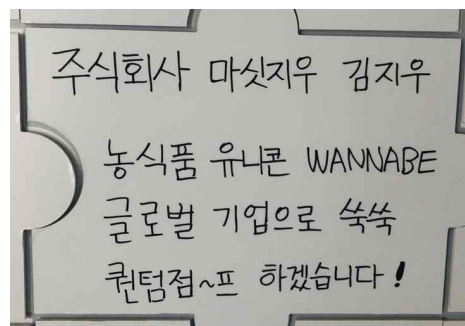 주식회사 마싯지우 김지우
농식품 유니콘 WANNABE
글로벌 기업으로 쑥쑥
퀀텀점~프 하겠습니다!